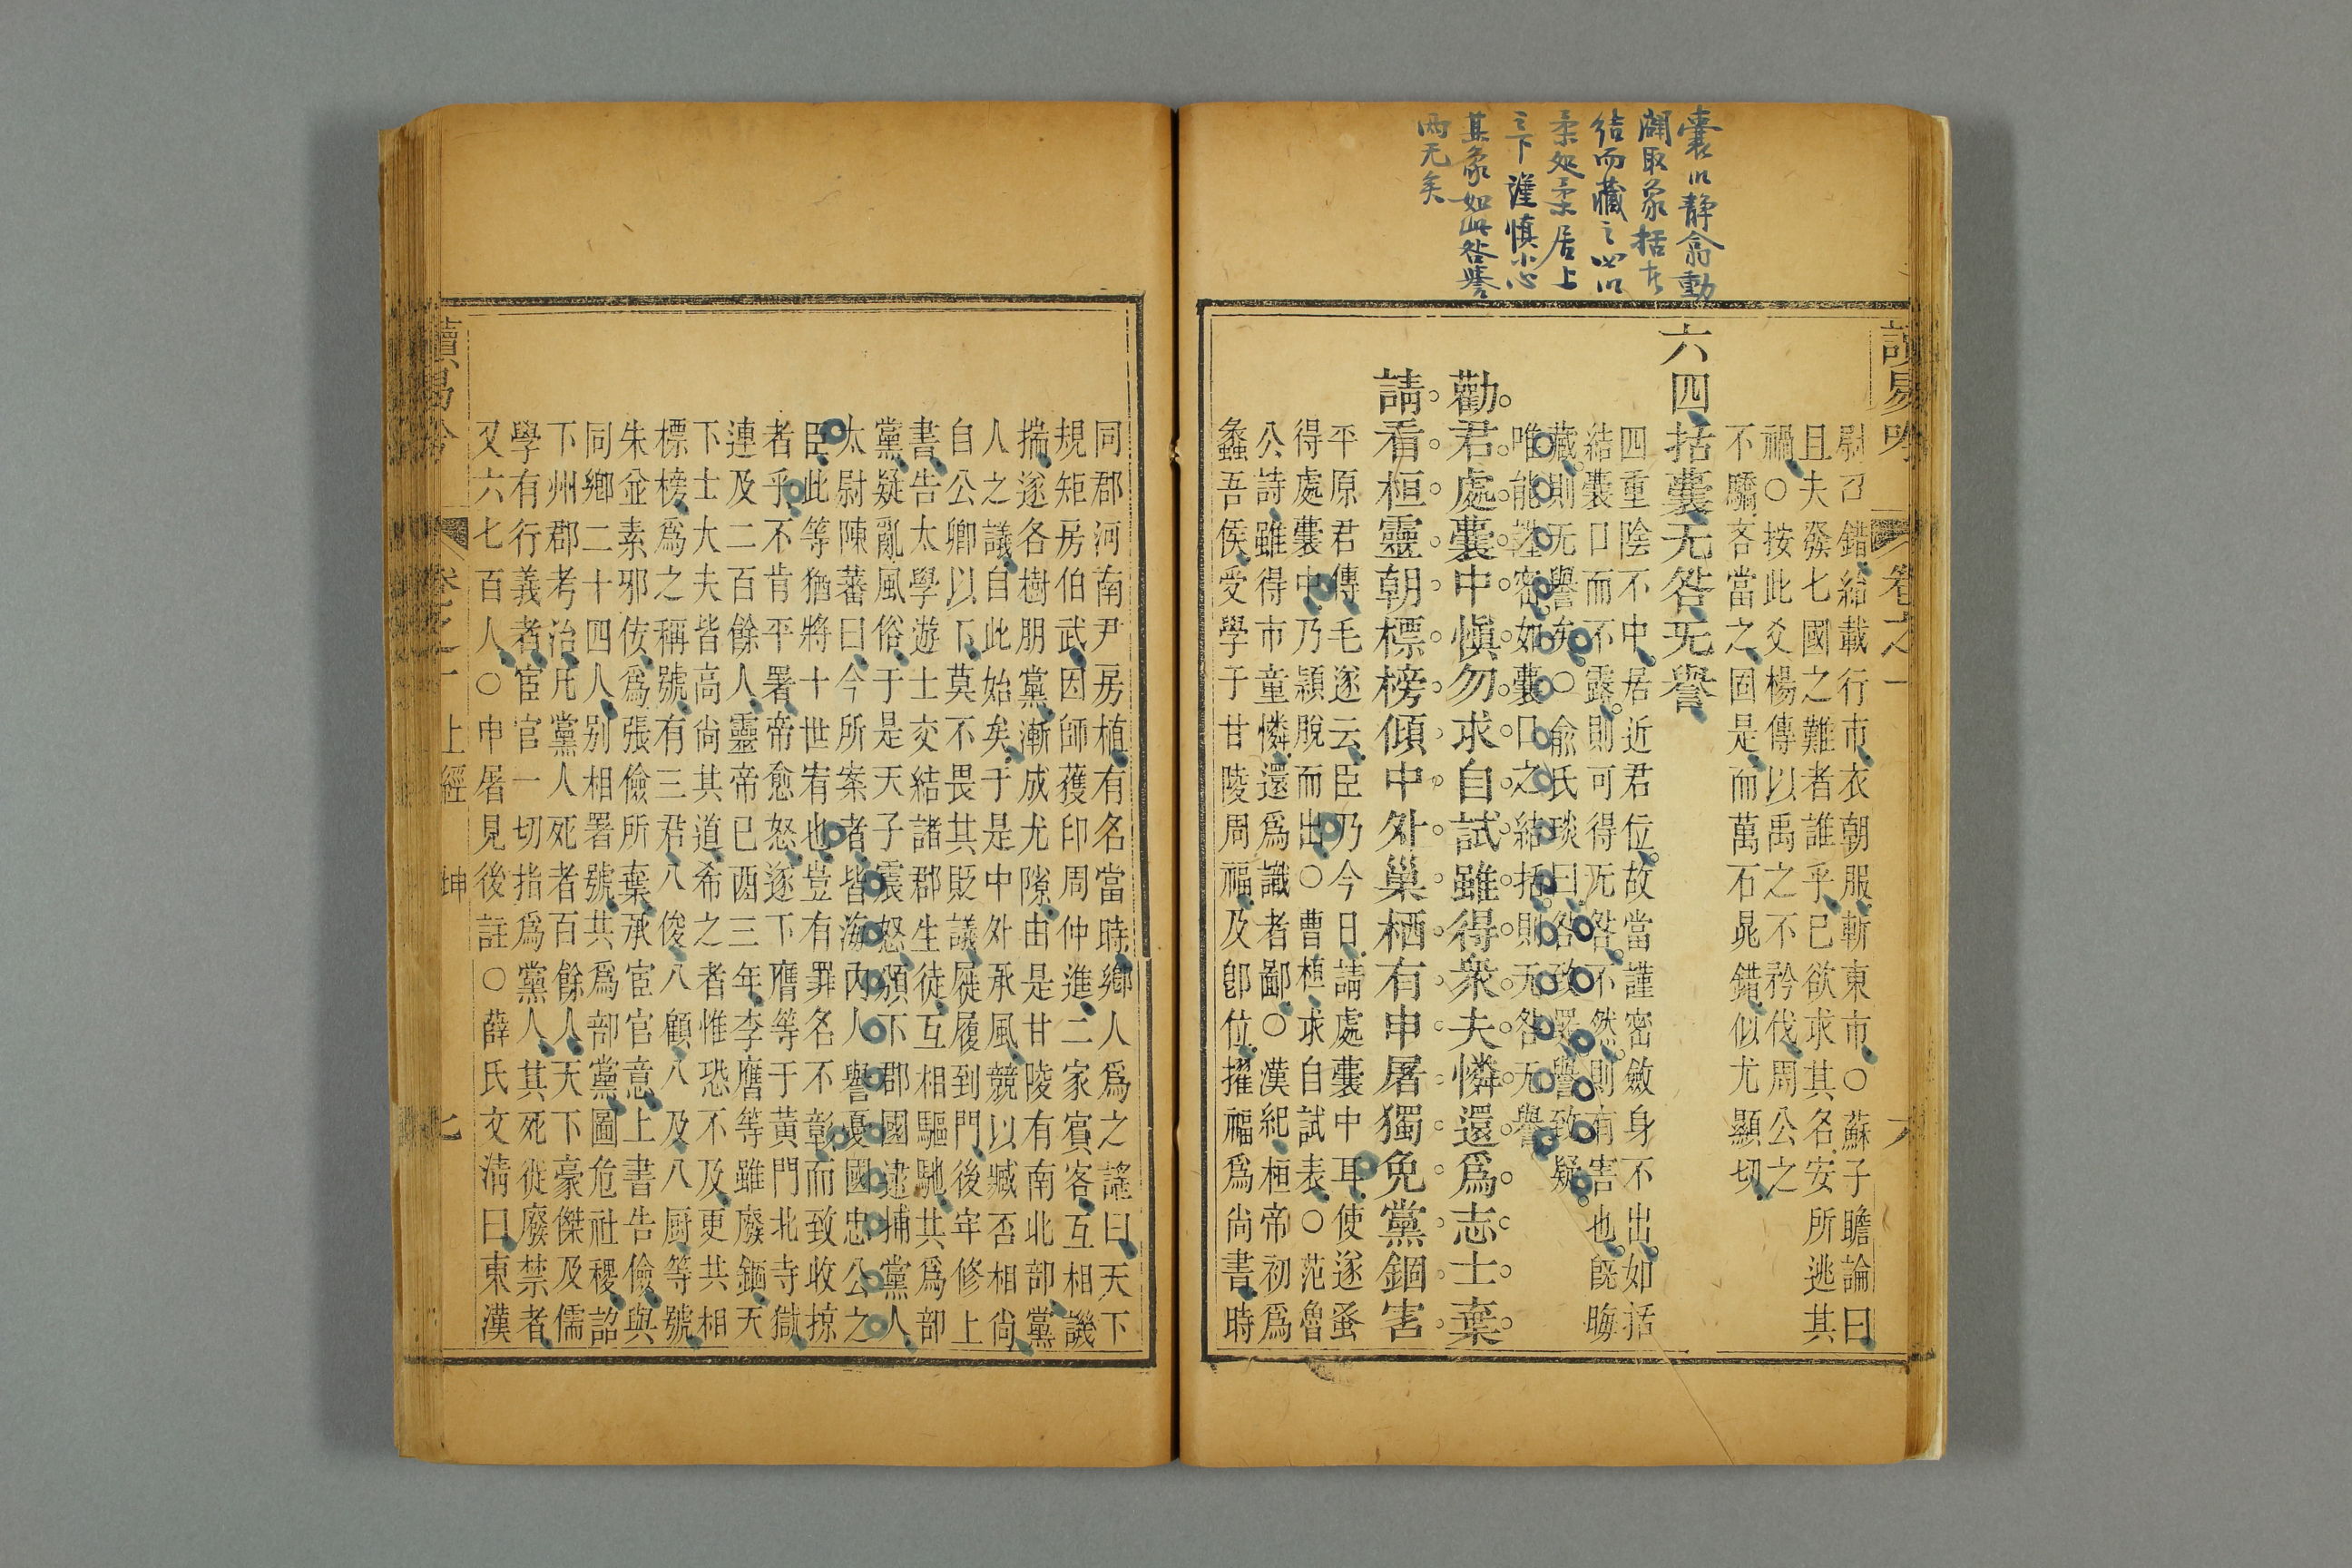 囊以靜翕動
闢取象括者
結而藏之也以
柔处柔居上
之下謹慎小心
其象如此咎譽
兩无矣
讀易吟
卷之一
六
尉召錯紿載行市衣朝服斬東市○蘇子瞻論曰
且夫發七國之難者誰乎巳欲求其名安所逃其
禍○按此爻楊傳以禹之不矜伐周公之
不驕吝當之固是而萬石晁錯似尤顯切
六四括囊无咎无譽
四重陰不中居近君位故當謹密斂身不出如括
結囊口而不露則可得无咎不然則有害也旣晦
藏則无譽矣○俞氏琰曰咎致罪譽致疑
唯能謹密如囊口之結括則无咎无譽
勸君處囊中愼勿求自試雖得衆夫憐還爲志士棄
請看桓靈朝標榜傾中外巢栖有申屠獨免黨錮害
平原君傳毛遂云臣乃今日請處囊中耳使遂蚤
得處囊中乃頴脫而出○曹植求自試表○范魯
公詩雖得市童憐還爲識者鄙○漢紀桓帝初爲
蠡吾侯受學于甘陵周福及卽位擢福爲尚書時
同郡河南尹房植有名當時鄉人爲之謠曰天下
規矩房伯武因師獲印周仲進二家賓客互相譏
揣遂各樹朋黨漸成尤隙由是甘陵有南北部黨
人之議自此始矣于是中外承風競以臧否相尚
自公卿以下莫不畏其貶議屣履到門後牢修上
書告太學遊士交結諸郡生徒互相驅馳共爲部
黨疑亂風俗于是天子震怒頒下郡國逮捕黨人
太尉陳蕃曰今所案者皆海內人譽憂國忠公之
臣此等猶將十世宥也豈有罪名不彰而致收掠
者乎不肯平署帝愈怒遂下膺等于黃門北寺獄
連及二百餘人靈帝巳酉三年李膺等雖廢錮天
下士大夫皆高尚其道希之者惟恐不及更共相
標榜爲之稱號有三君八俊八顧八及八厨等號
朱並素邪佞爲張儉所棄承宦官意上書告儉與
同鄉二十四人別相署號共爲部黨圖危社稷詔
下州郡考治凡黨人死者百餘人天下豪傑及儒
學有行義者宦官一切指爲黨人其死徙廢禁者
又六七百人○申屠見後註○薛氏文淸曰東漢
讀易吟
卷之一
上經
坤
七